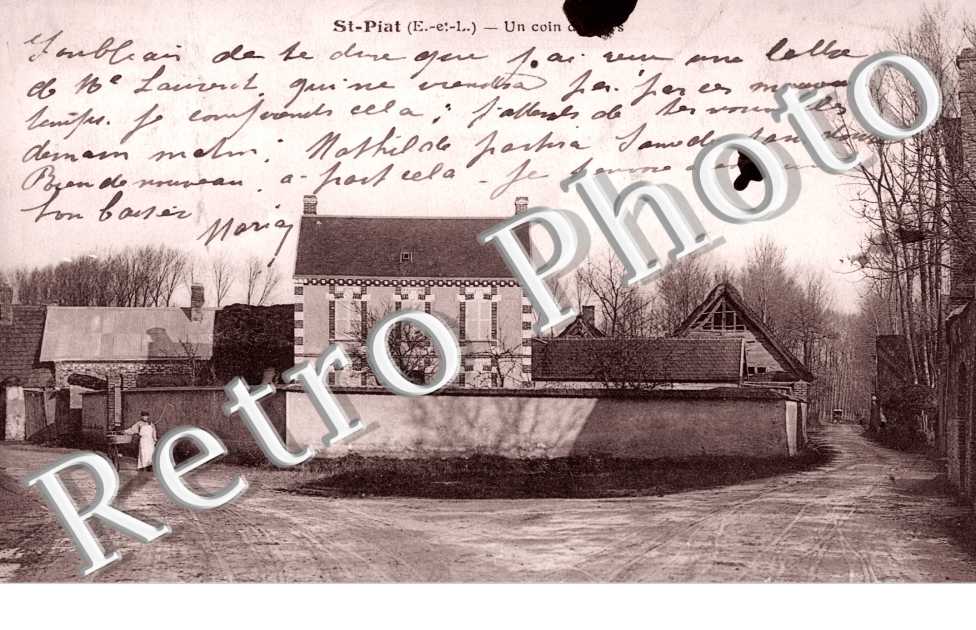 St-Piat (E.-et-L.) — Un coin
J'oubliais de te dire que j'ai reçu une lettre
de Me Laurent, qui ne viendra pas par ces mauvais
temps. Je comprends cela; j'attends de tes nouvelles
demain matin; Mathilde partira Samedi
Rien de nouveau, à part cela. Je
bon baiser
Maria
Retro Photo